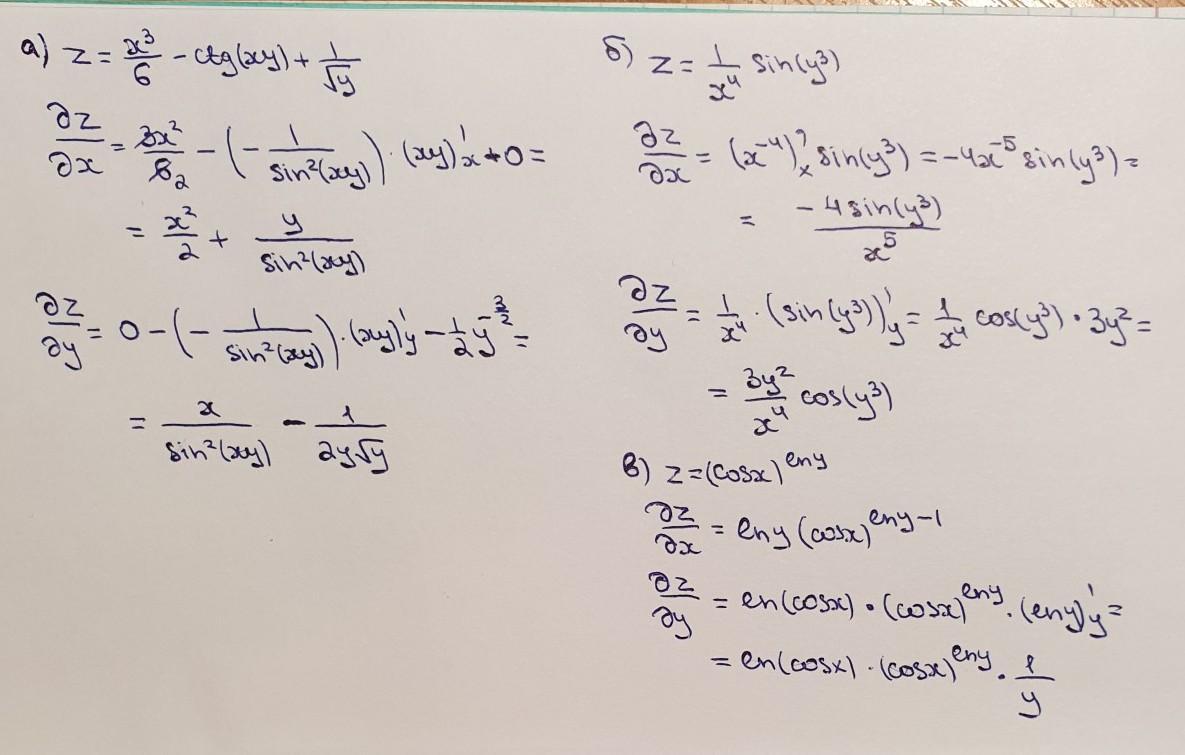 а) z = x³/6 - ctg(xy) + 1/√y
∂z/∂x = 3x²/6₂ - (- 1/sin²(xy)) · (xy)'ₓ + 0 =
= x²/2 + y/sin²(xy)
∂z/∂y = 0 - (- 1/sin²(xy)) · (xy)'y - 1/2 y^(-3/2) =
= x/sin²(xy) - 1/(2y√y)
б) z = 1/x⁴ sin(y³)
∂z/∂x = (x⁻⁴)'ₓ sin(y³) = -4x⁻⁵ sin(y³) =
= -4sin(y³)/x⁵
∂z/∂y = 1/x⁴ · (sin(y³))'y = 1/x⁴ cos(y³) · 3y² =
= 3y²/x⁴ cos(y³)
в) z = (cosx)^(lny)
∂z/∂x = lny (cosx)^(lny-1)
∂z/∂y = ln(cosx) · (cosx)^(lny) · (lny)'y =
= ln(cosx) · (cosx)^(lny) · 1/y